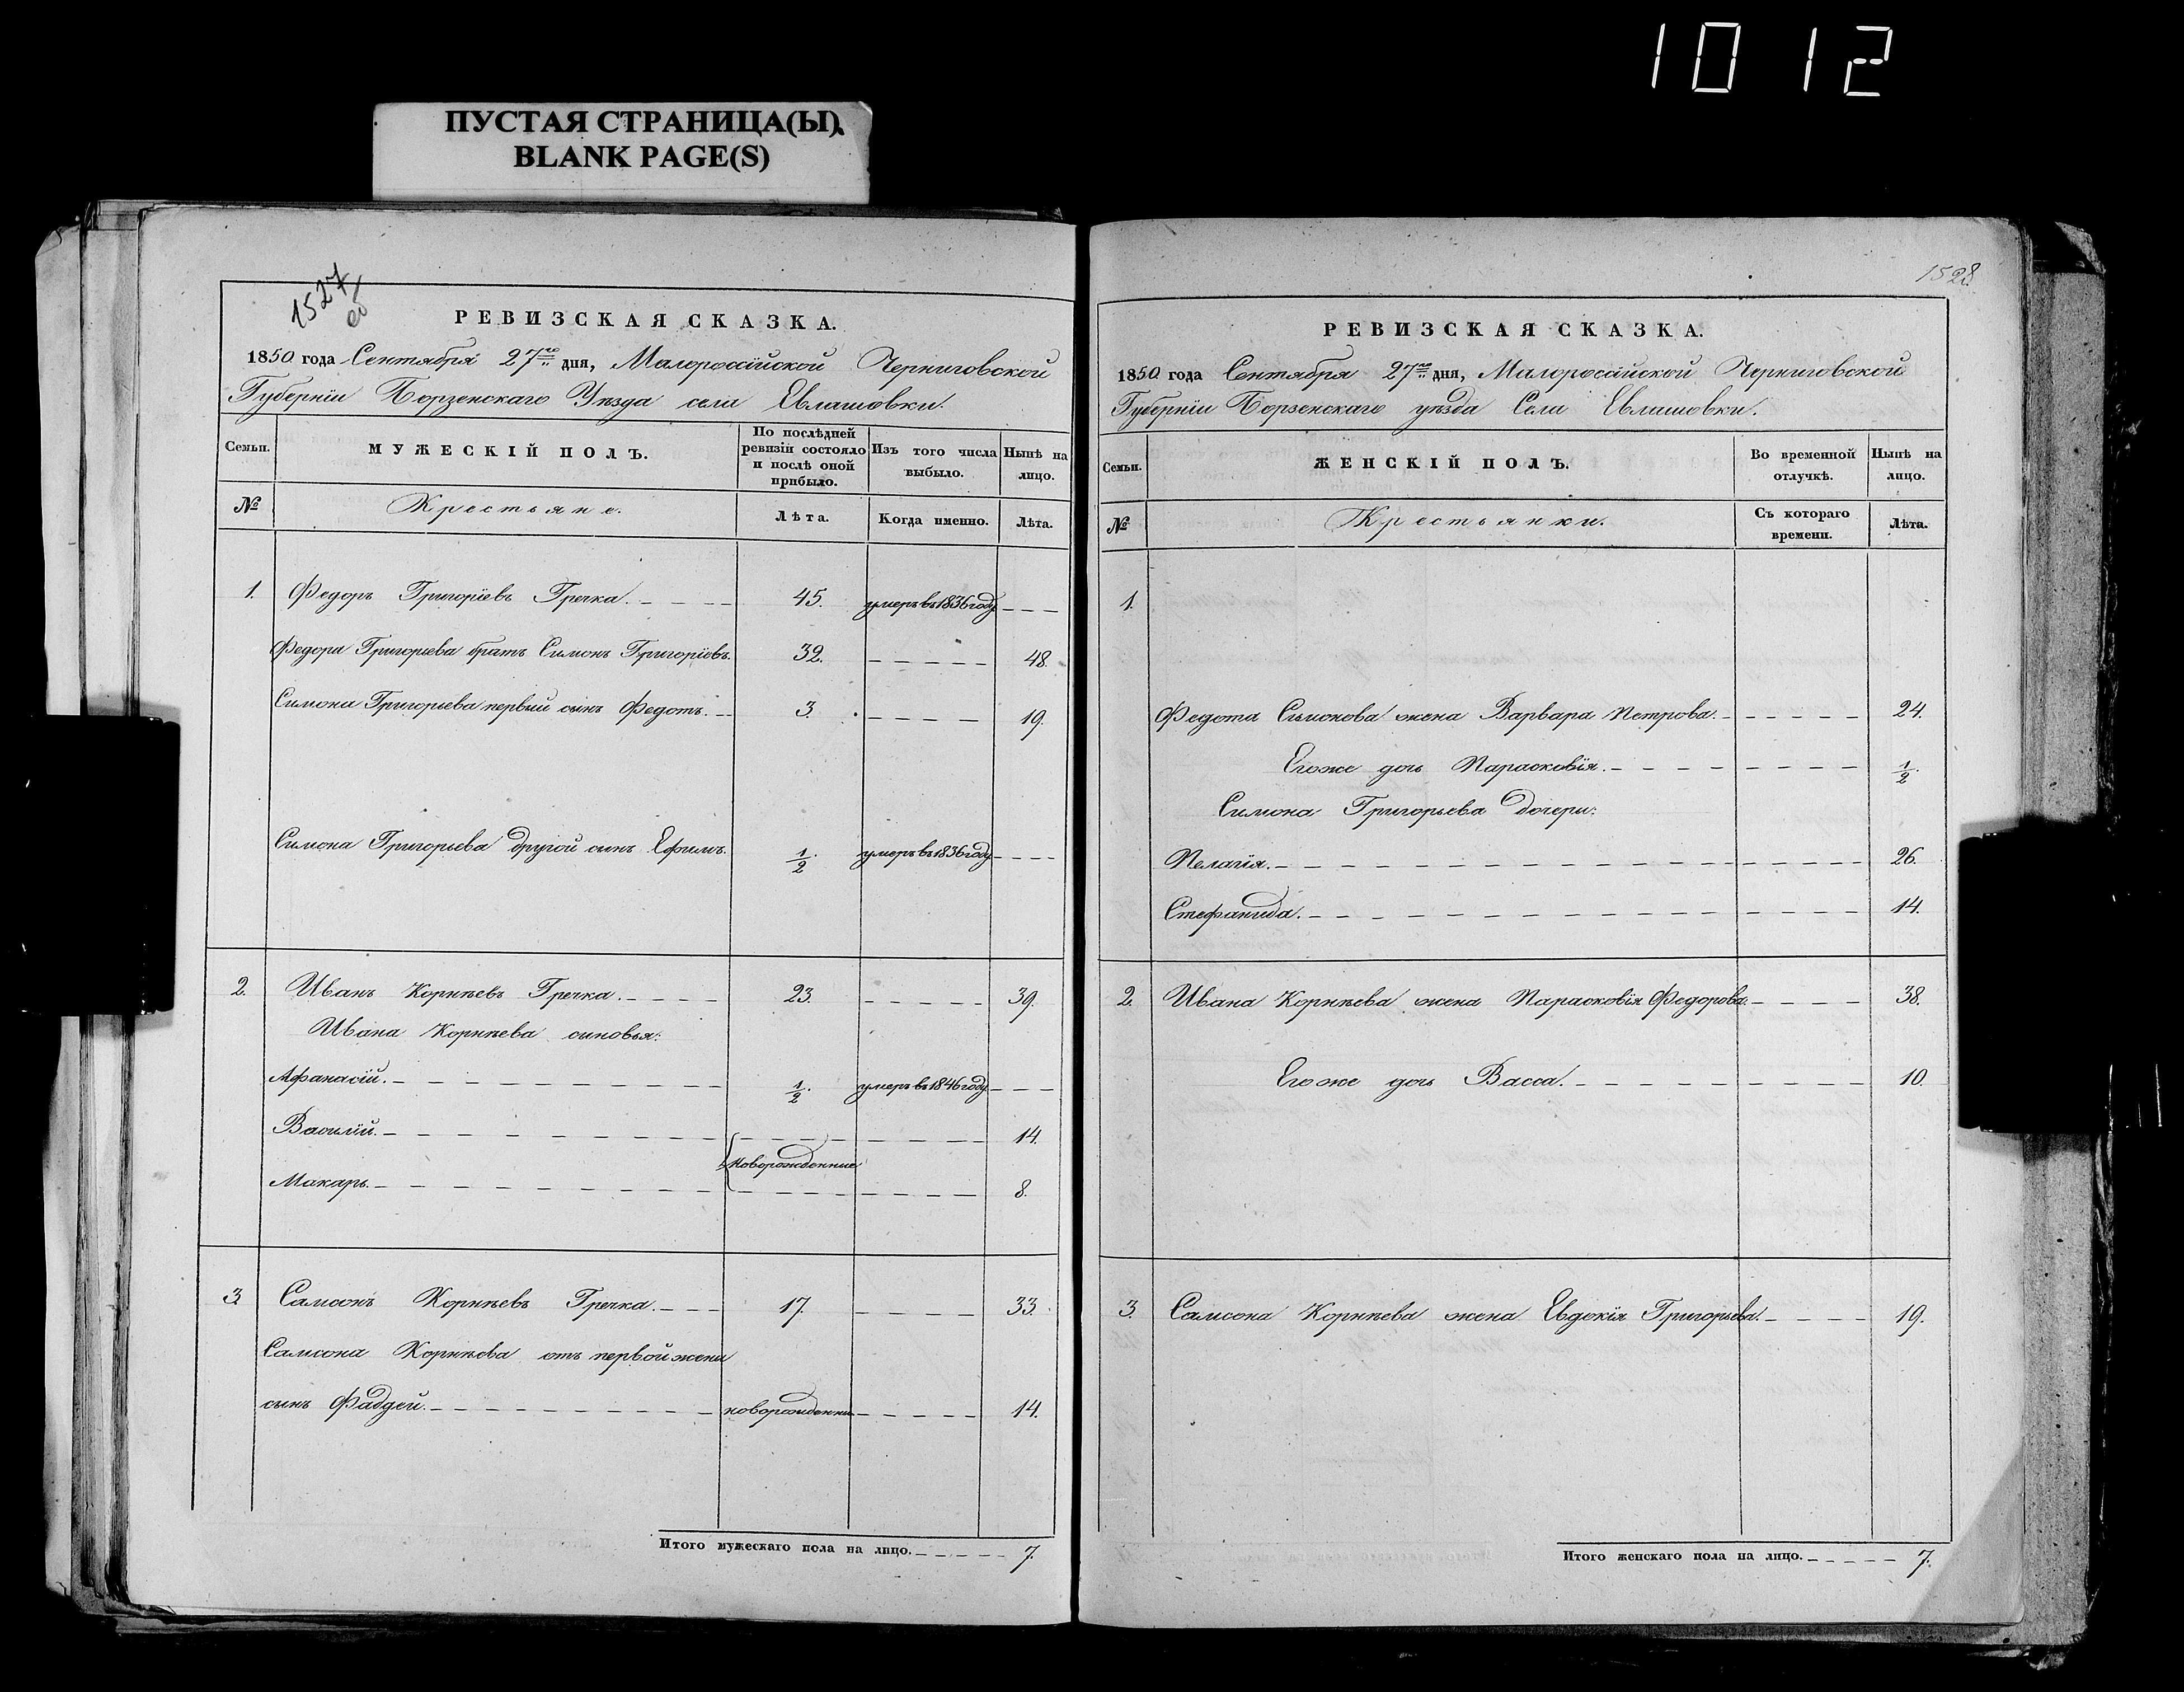 1012
ПУСТАЯ СТРАНИЦА(Ы).
BLANK PAGE(S)
1527
об
РЕВИЗСКАЯ СКАЗКА.
1850 года Сентября 27го дня, Малороссійской Черниговской
Губерніи Борзенскаго Уѣзда села Евлашовки.
Семьи.
МУЖЕСКІЙ ПОЛЪ.
По послѣдней ревизіи состояло и послѣ оной прибыло.
Изъ того числа выбыло.
Нынѣ на лицо.
№
Крестьяне.
Лѣта.
Когда именно.
Лѣта.
1. Федоръ Григоріевъ Гречка. 45. умеръ въ 1836 году
Федора Григорьева братъ Симонъ Григоріевъ. 32. 48.
Симона Григорьева первый сынъ Федотъ. 3. 19.
Симона Григорьева другой сынъ Ефимъ. 1/2. умеръ въ 1836 году
2. Иванъ Корнѣевъ Гречка. 23. 39.
Ивана Корнѣева сыновья:
Афанасій. 1/2. умеръ въ 1846 году
Василій. 14.
новорожденные
Макаръ. 8.
3. Самсонъ Корнѣевъ Гречка. 17. 33.
Самсона Корнѣева отъ первой жены
сынъ Фаддей. новорожденный 14.
Итого мужескаго пола на лицо. 7.
1528.
РЕВИЗСКАЯ СКАЗКА.
1850 года Сентября 27го дня, Малоросайской Черниговской
Губерніи Борзенскаго уѣзда Села Евлашовки.
Семьи.
ЖЕНСКІЙ ПОЛЪ.
Во временной отлучкѣ.
Нынѣ на лицо.
№
Крестьянки.
Съ котораго времени.
Лѣта.
1.
Федота Симонова жена Варвара Петрова. 24.
Егоже дочь Парасковія. 1/2.
Симона Григорьева дочери:
Пелагія. 26.
Стефанида. 14.
2. Ивана Корнѣева жена Парасковія Федорова. 38.
Егоже дочь Васса. 10.
3. Самсона Корнѣева жена Евдокія Григорьева. 19.
Итого женскаго пола на лицо. 7.